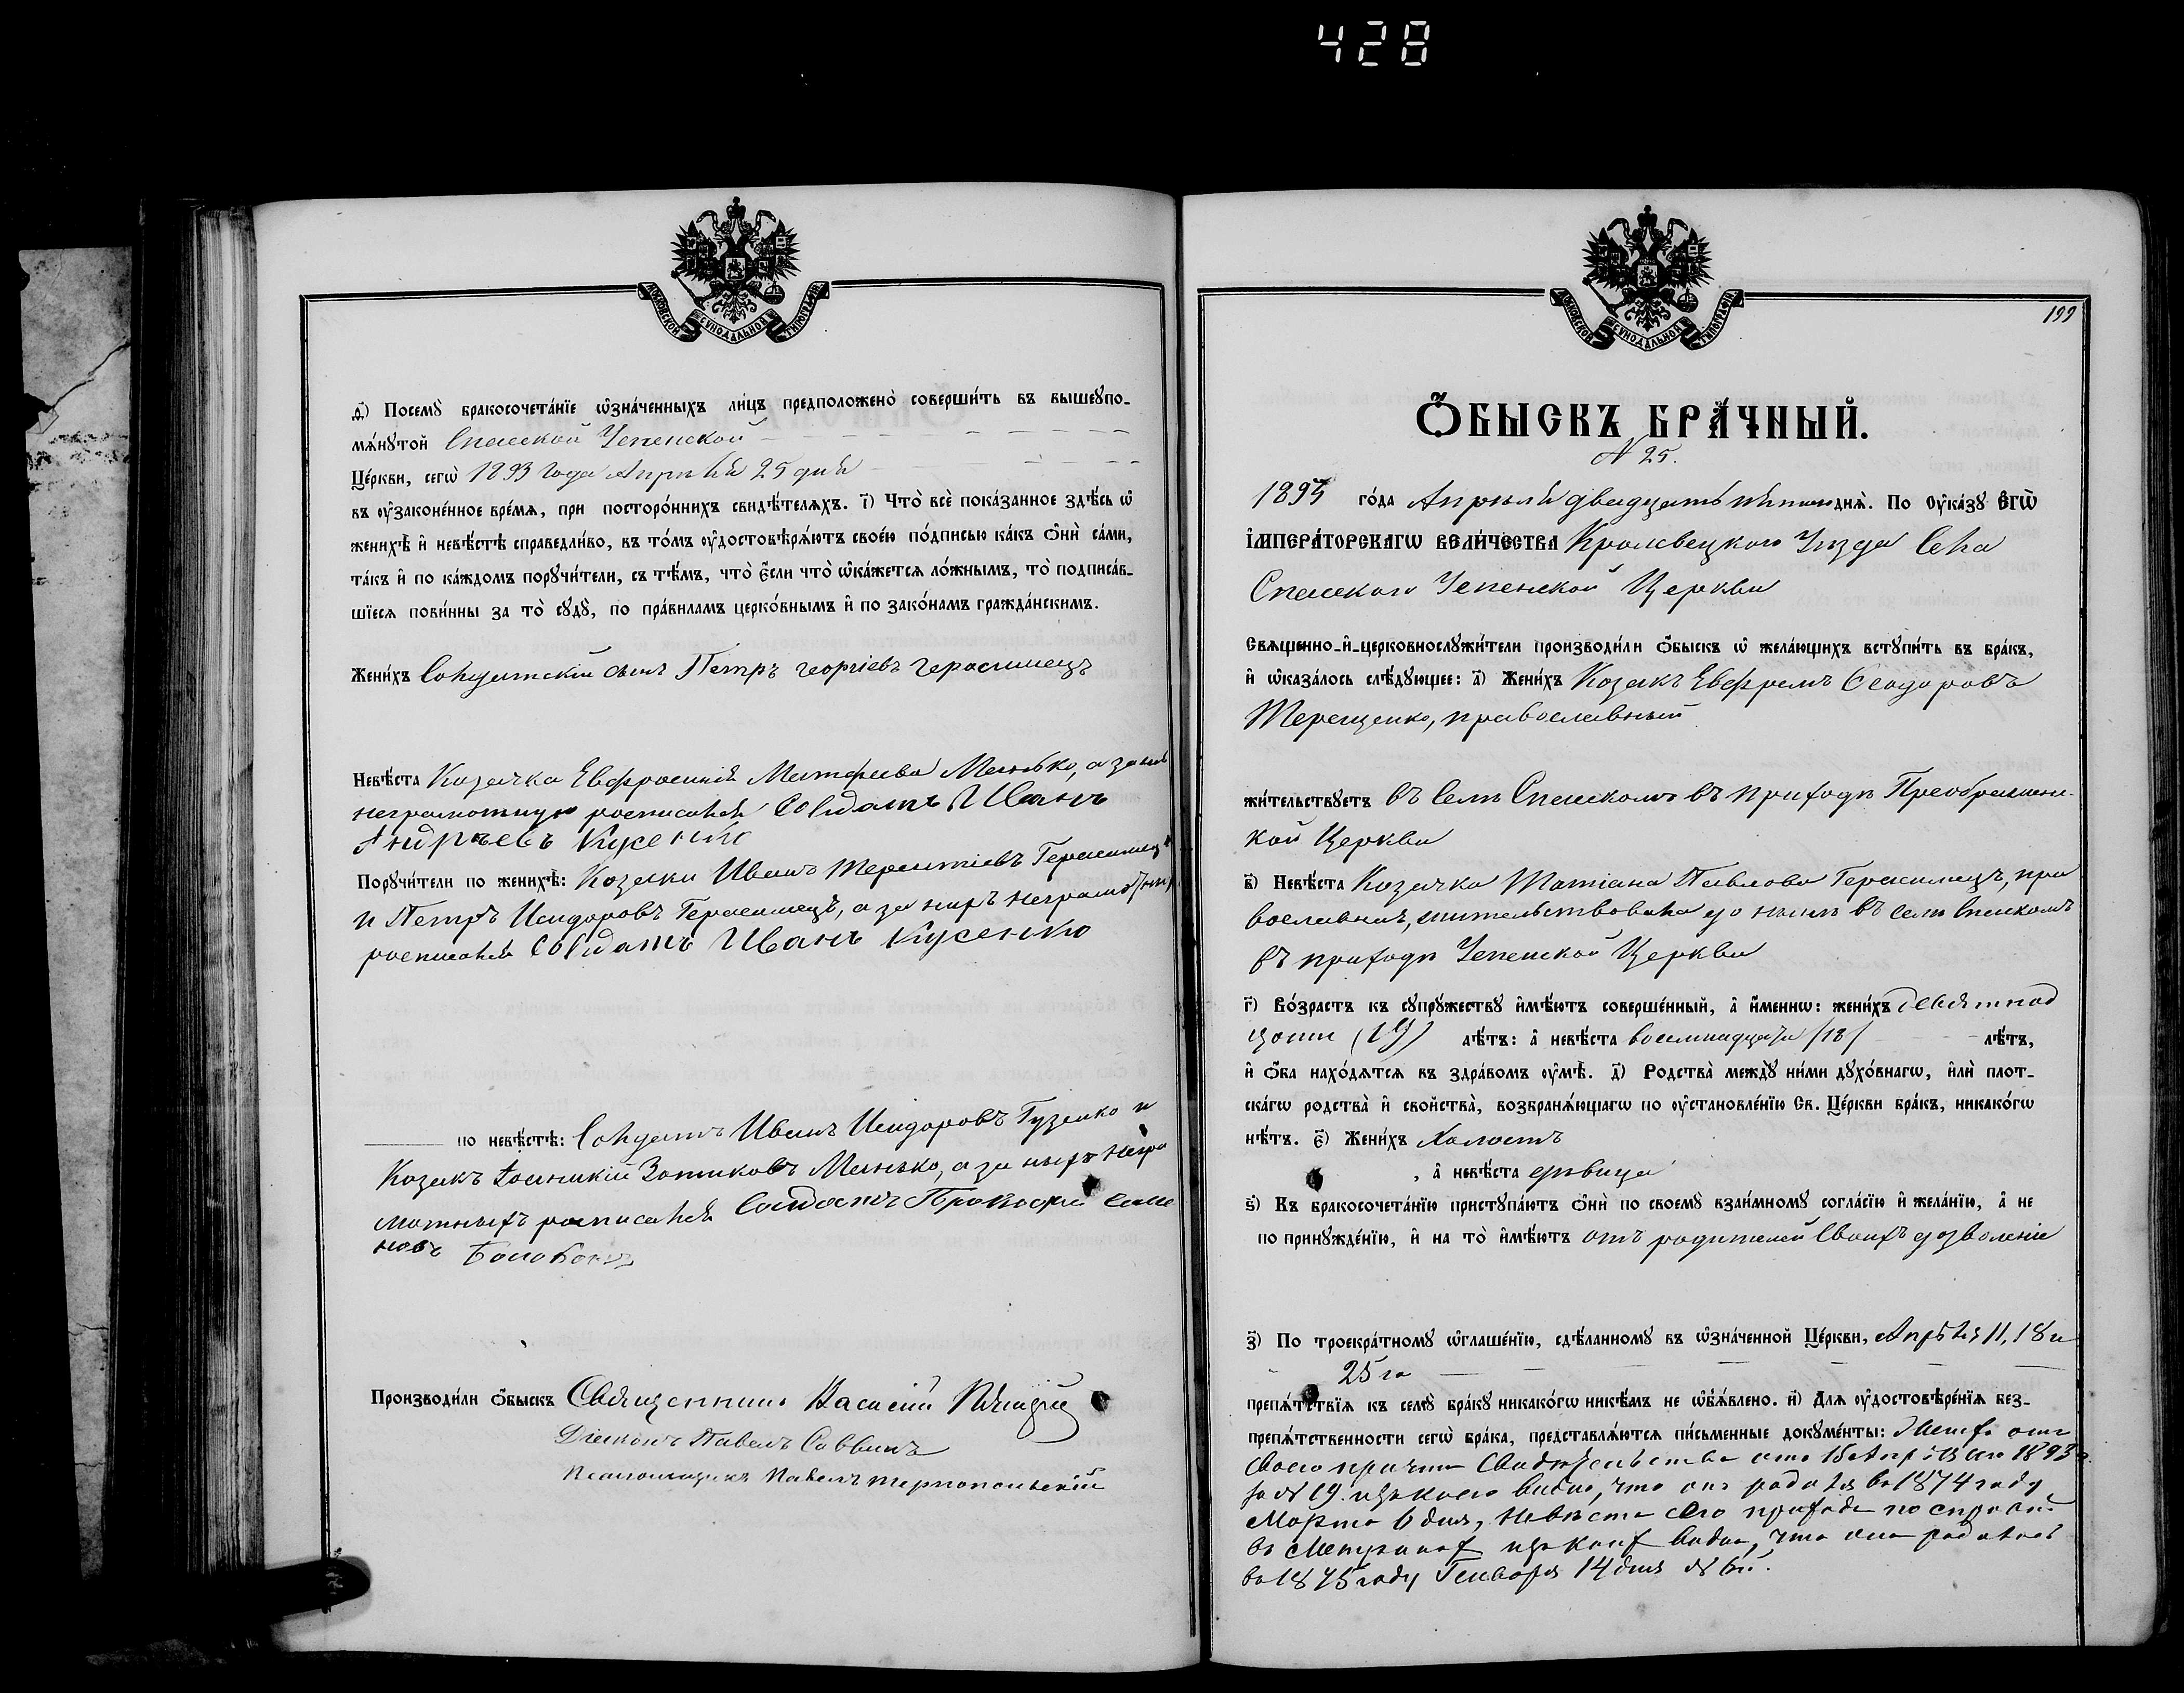 428
МОСКОВСКОЙ СѴНОДАЛЬНОЙ ТИПОГРАФІИ
д҃і) Посемꙋ̀ бракосочета́нїе ѡ҆зна́ченныхъ ли́цъ предположено̀ соверши́ть въ вышеꙋпо-
мѧ́нꙋтой Спасской Успенской
Це́ркви, сегѡ̀ 1893 года Апрѣля 25 дня
въ ᲂу҆законе́нное вре́мѧ, при посторо́ннихъ свидѣ́телѧхъ. і҃) Что̀ всѐ пока́занное здѣ́сь ѡ҆
женихѣ̀ и҆ невѣ́стѣ справедли́во, въ то́мъ ᲂу҆достовѣрѧ́ютъ свое́ю по́дписью ка́къ ѻ҆нѝ са́ми,
та́къ и҆ по ка́ждомъ порꙋчи́тели, съ тѣ́мъ, что̀ є҆́сли что̀ ѡ҆ка́жетсѧ ло́жнымъ, то̀ подписа́в-
шїесѧ пови́нны за то̀ сꙋдꙋ̀, по пра́виламъ церко́внымъ и҆ по зако́намъ гражда́нскимъ.
Жени́хъ Солдатскій сынъ Петръ Георгіевъ Герасимецъ
Невѣ́ста Козачка Евфросинія Матфеева Манько, а за нея
неграмотную росписался Солдатъ Иванъ
Андрѣевъ Кусенко
Порꙋчи́тели по женихѣ̀: Козаки Иванъ Терентіевъ Герасимецъ
и Петръ Исидоровъ Герасимецъ, а за нихъ неграмотныхъ
росписался Солдатъ Иванъ Кусенко
по невѣ́стѣ: Солдатъ Иванъ Исидоровъ Гузенко и
Козакъ Іоанникій Зотиковъ Манько, а за ныхъ негра
мотныхъ росписался Солдатъ Прокофій Семе
новъ
Производи́ли ѻ҆́быскъ Священникъ Василій
Діаконъ Павелъ Саввинъ
Псаломщикъ Павелъ Тернопольскій
МОСКОВСКОЙ СѴНОДАЛЬНОЙ ТИПОГРАФІИ
199
Ѻ҆́БЫСКЪ БРА́ЧНЫЙ.
№ 25.
1893 го́да Апрѣля двадцать пятаго днѧ̀. По ᲂу҆ка́зꙋ є҆гѡ̀
і҆мпера́торскагѡ вели́чества Кролевецкого Уѣзда Села
Спасского Успенской Церкви
Свѧщенно-и҆-церковнослꙋжи́тели производи́ли ѻ҆́быскъ ѡ҆ жела́ющихъ встꙋпи́ть въ бра́къ,
и҆ ѡ҆каза́лось слѣ́дꙋющее: а҃) Жени́хъ Козакъ Евфремъ Феодоровъ
Терещенко, православный
жи́тельствꙋетъ въ селѣ Спасскомъ въ приходѣ Преображен-
кой Церкви
в҃) Невѣ́ста Козачка Татіана Павлова Герасимецъ, пра
вославная, жительствовала до нынѣ въ селѣ Спаскомъ
въ приходѣ Успенской Церкви
г҃) Во́зрастъ къ сꙋпрꙋ́жествꙋ и҆мѣ́ютъ соверше́нный, а҆ и҆́меннѡ: жени́хъ девятнад
цати (19) лѣ́тъ: а҆ невѣ́ста восемнадцати /18/ лѣ́тъ,
и҆ ѻ҆́ба нахо́дѧтсѧ въ здра́вомъ ᲂу҆мѣ̀. д҃) Родства̀ междꙋ̀ ни́ми дꙋхо́внагѡ, и҆лѝ плот-
ска́гѡ родства̀ и҆ свойства̀, возбранѧ́ющагѡ по ᲂу҆становле́нїю Св. Це́ркви бра́къ, никако́гѡ
нѣ́тъ. є҃) Жени́хъ Холостъ
, а҆ невѣ́ста дѣвица
ѕ҃) Къ бракосочета́нїю пристꙋпа́ютъ ѻ҆нѝ по своемꙋ̀ взаи́мномꙋ согла́сїю и҆ жела́нїю, а҆ не
по принꙋжде́нїю, и҆ на то̀ и҆мѣ́ютъ отъ родителей своихъ дозволеніе
з҃) По троекра́тномꙋ ѡ҆глаше́нїю, сдѣ́ланномꙋ въ ѡ҆зна́ченной Це́ркви, Апрѣля 11, 18 и
25 го
препѧ́тствїѧ къ семꙋ̀ бра́кꙋ никако́гѡ никѣ́мъ не ѡ҆б̾ѧ́влено. и҃) Для ᲂу҆достовѣре́нїѧ без-
препѧ́тственности сегѡ̀ бра́ка, представлѧ́ютсѧ пи́сьменные докꙋме́нты: Жених. отъ
своего причта Свидѣтельство отъ 15 Апрѣля 1893 г.
за № 19. изъ коего видно, что онъ родился въ 1874 году
Марта 6 дня, Невѣста сего прихода по справкѣ
въ Метриках изъ коих видно, что она родилась
въ 1875 году Генваря 14 дня № 6й.